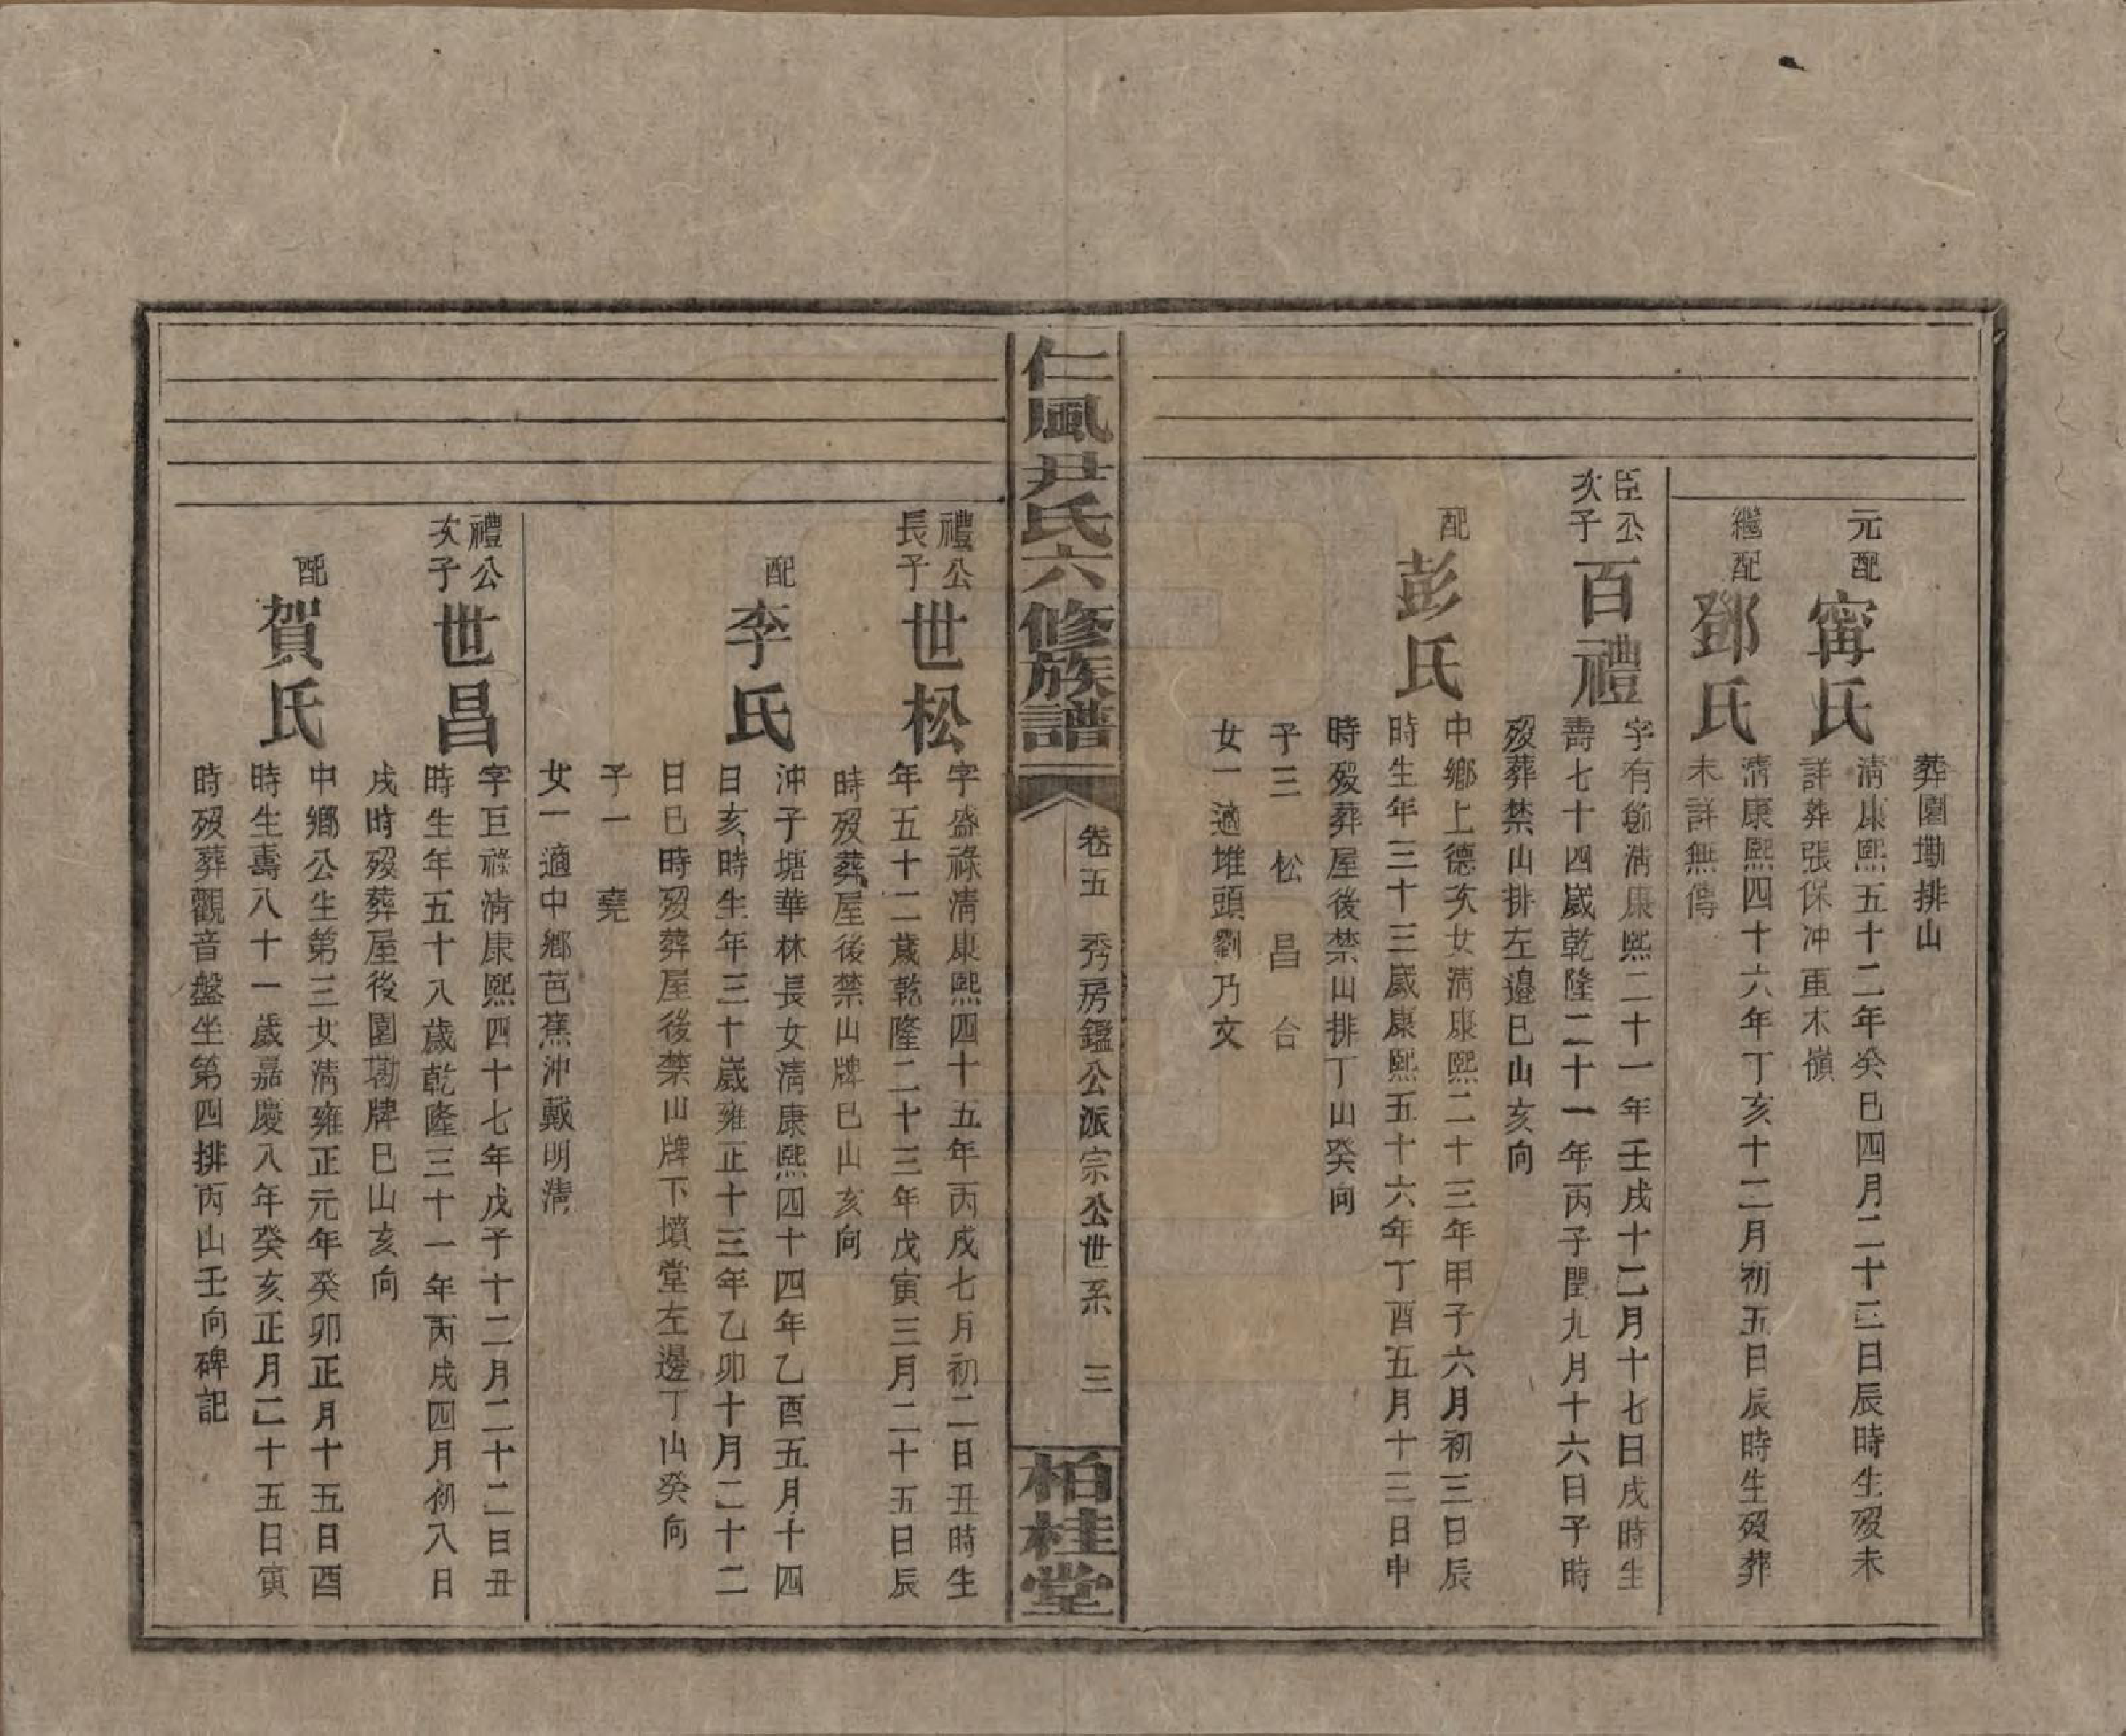 葬園墈排山
元配
甯氏
清康熙五十二年癸巳四月二十三日辰時生歿未
詳葬張保冲重木嶺
繼配
鄧氏
清康熙四十六年丁亥十二月初五日辰時生歿葬
未詳無傳
臣公
次子
百禮
字有節清康熙二十一年壬戌十二月十七日戌時生
壽七十四歲乾隆二十一年丙子閏九月十六日子時
歿葬禁山排左邊巳山亥向
配
彭氏
中鄉上德次女清康熙二十三年甲子六月初三日辰
時生年三十三歲康熙五十六年丁酉五月十三日申
時歿葬屋後禁山排丁山癸向
子三 松 昌 台
女一適堆頭劉乃文
仁風尹氏六修族譜
卷五 秀房鑑公派宗公世系 三
柏桂堂
禮公
長子
世松
字盛祿清康熙四十五年丙戌七月初二日丑時生
年五十二歲乾隆二十三年戊寅三月二十五日辰
時歿葬屋後禁山牌巳山亥向
配
李氏
沖子塘華林長女清康熙四十四年乙酉五月十四
日亥時生年三十歲雍正十三年乙卯十月二十二
日巳時歿葬屋後禁山牌下墳堂左邊丁山癸向
子一 堯
女一適中鄉芭蕉沖戴明清
禮公
次子
世昌
字巨祿清康熙四十七年戊子十二月二十二日丑
時生年五十八歲乾隆三十一年丙戌四月初八日
戌時歿葬屋後園墈牌巳山亥向
配
賀氏
中鄉公生第三女清雍正元年癸卯正月十五日酉
時生壽八十一歲嘉慶八年癸亥正月二十五日寅
時歿葬觀音盤坐第四排丙山壬向碑記